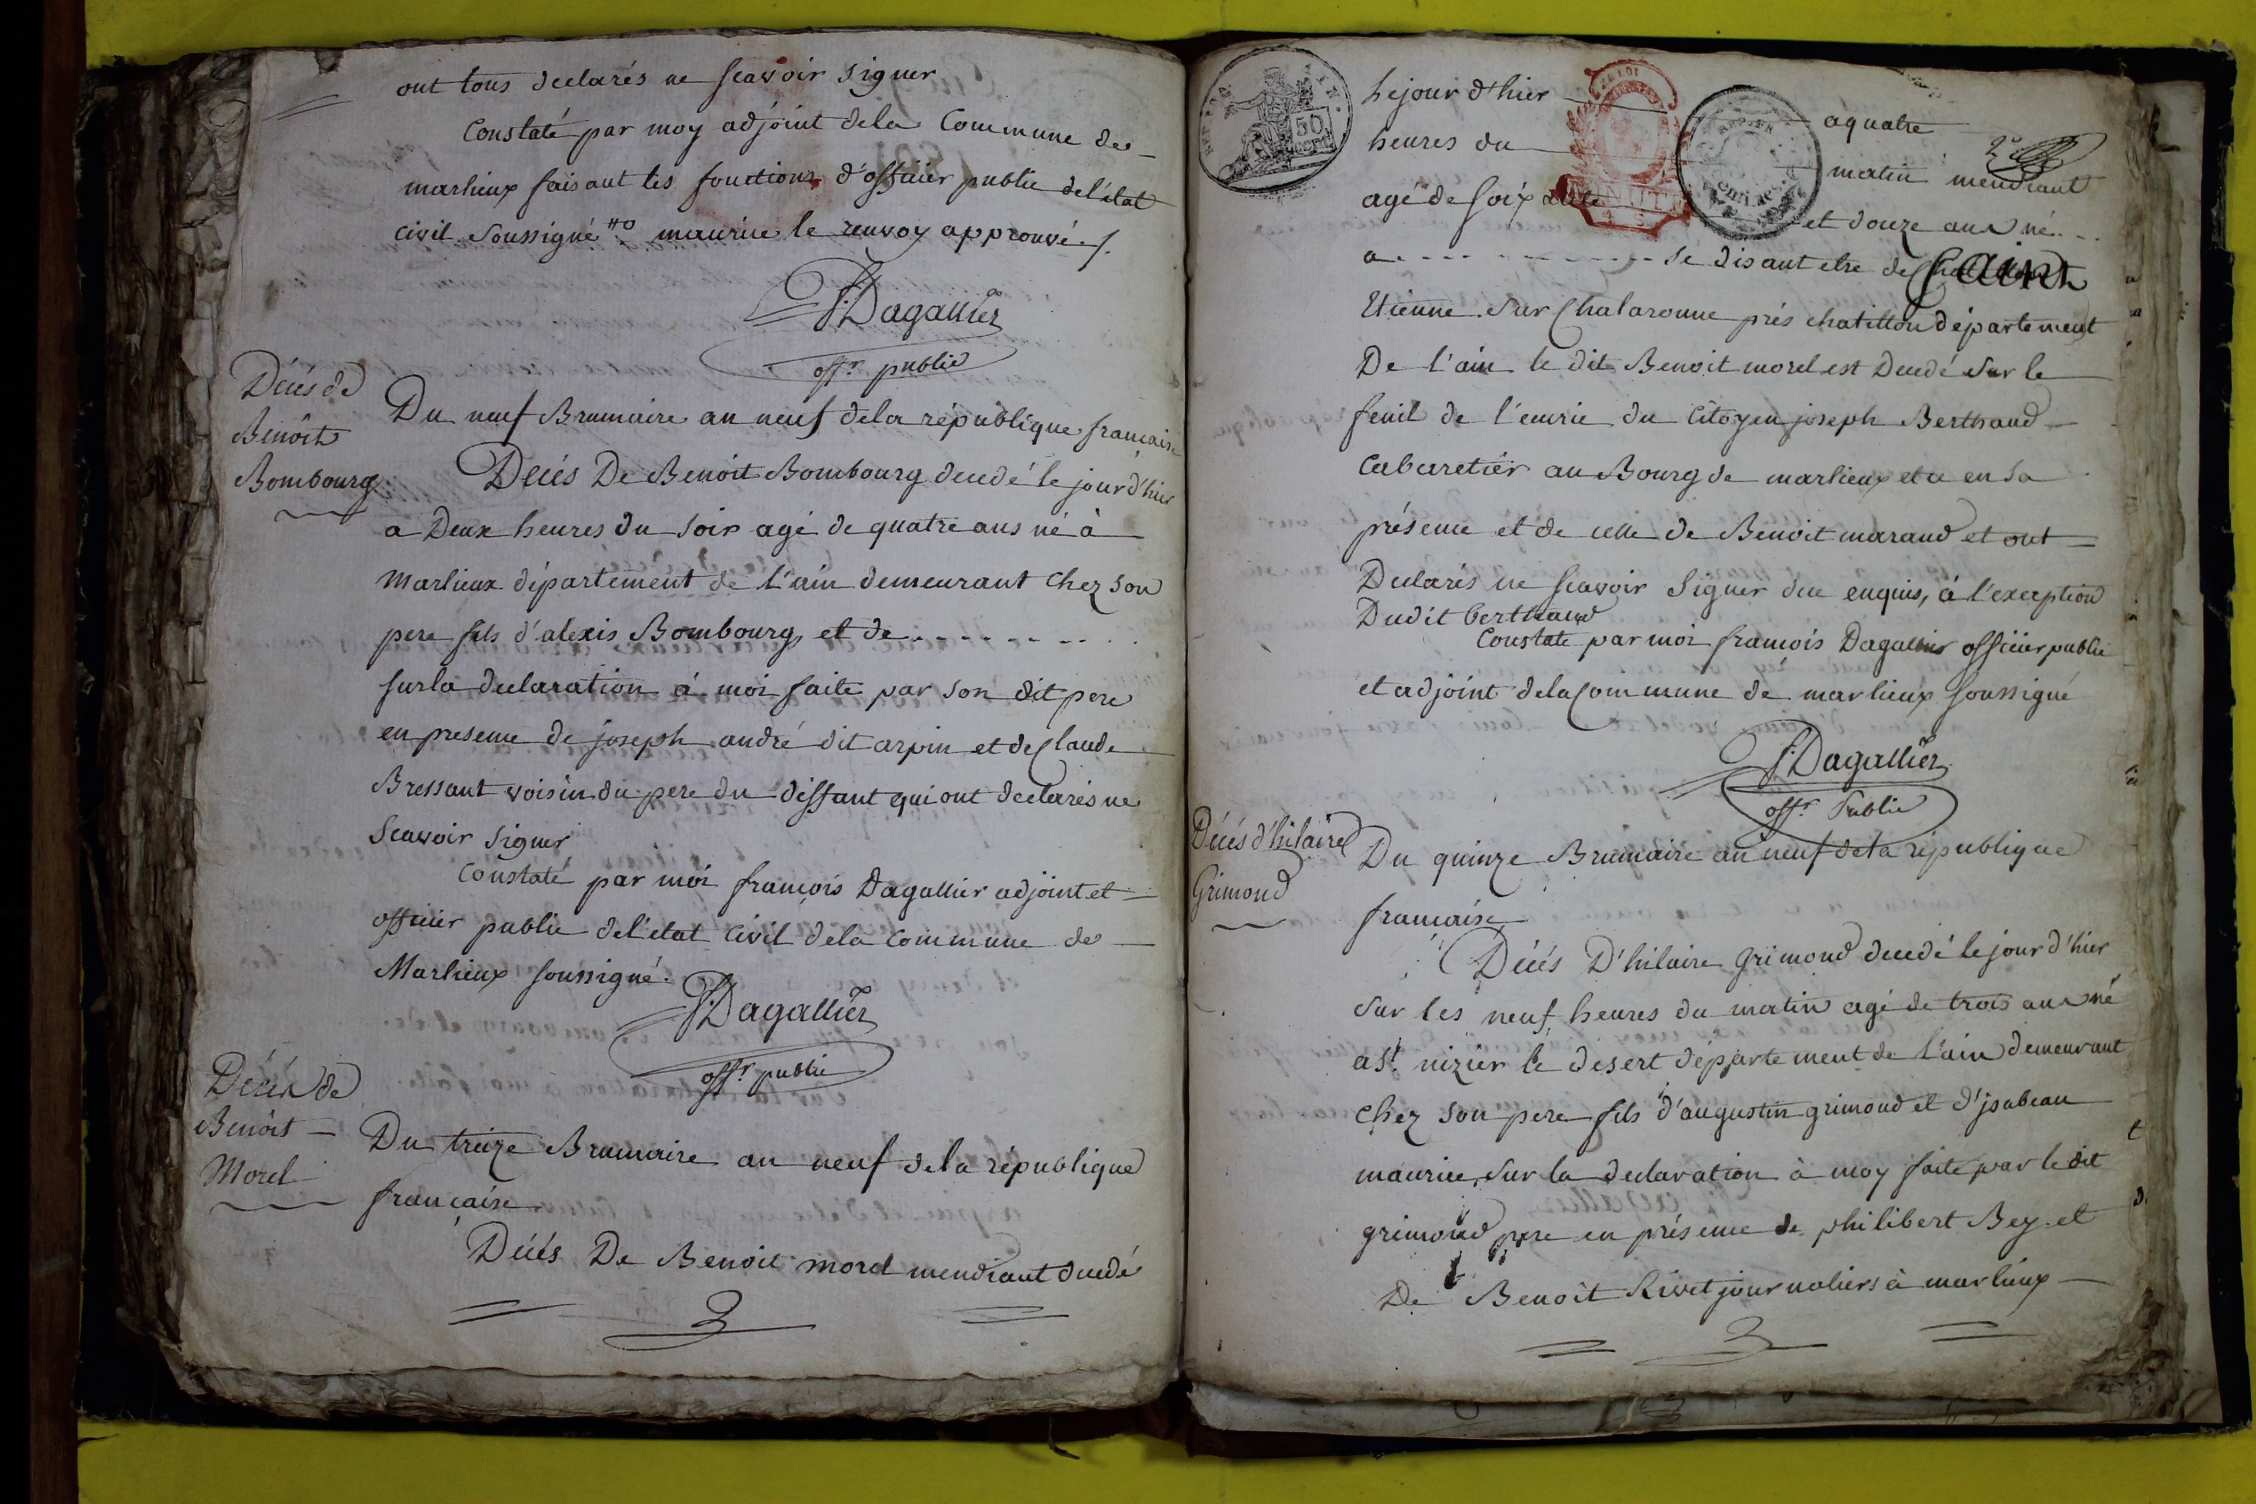 ont tous declarés ne scavoir signer
Constaté par moy adjoint dela Commune de
marlieux faisant les fonctions d'officier public del'état
civil soussigné maurice le renvoy approuvé ./.
Dagallier
offr. public
Décés de
Benôit
Bombourg
Du neuf Brumaire an neuf dela république francaise
Décés De Benoit Bombourg decedé le jour d'hier
a Deux heures du soir agé de quatre ans né à
Marlieux département de l'ain demeurant chez son
pere fils d'alexis Bombourg et de - - - - - - -
sur la declaration à moi faite par son dit pere
en presence de joseph andré dit arpin et de Claude
Bressant voisin du pere du deffant qui ont declarés ne
Scavoir signer
Constaté par moi françois Dagallier adjoint et
officier public del'état civil dela commune de
Marlieux soussigné.
Dagallier
offr. public
Décés de
Benoit
Morel
Du treize Brumaire an neuf dela république
française
Décés De Benoit morel mendiant decedé
REP. FRA.
50
CENT.
LA LOI
le jour d'hier aquatre
heures du matin mendiant
agé de soixante et douze ans né - -
a - - - - - - - - - - se disant etre de Saint
Etienne sur Chalaronne prés chatillon département
De l'ain le dit Benoit morel est Decedé sur le
fenil de l'ecurie du citoyen joseph Berthaud
Cabaretier au Bourg de marlieux et a en sa
présence et de celle de Benoit maraud et ont
Declarés ne scavoir signer de ce enquis, à l'exception
Dudit berthaud
Constaté par moi françois Dagallier officier public
et adjoint dela Commune de marlieux soussigné
Dagallier
offr. Public
Décés d'hilaire
Grimond
Du quinze Brumaire an neuf dela république
française
Décés D'hilaire Grimond decedé le jour d'hier
sur les neuf heures du matin agé de trois ans né
a St. nizier le desert département de l'ain demeurant
chez son pere fils d'augustin grimond et d'jsabeau
maurice, sur la declaration à moy faite par le dit
grimond pere en présence de philibert Bey et
De Benoit Rivet journaliers à marlieux